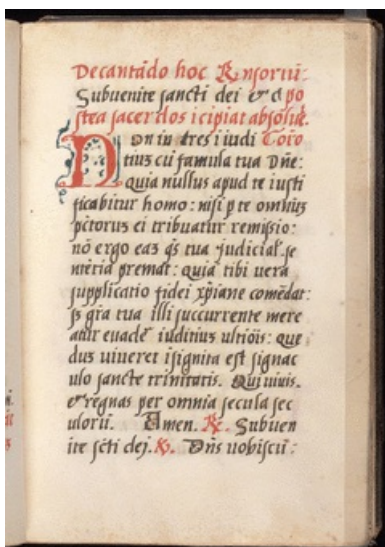 Decantādo hoc ℟nsoriū:
Subuenite sancti dei & d po
stea sacerdos icipiat absolut̄.
Non in tres i iudi Coīo
tiuȝ cū famula tua Dn̄e:
quia nullus apud te iusti
ficabitur homo: nisi p te omniuȝ
pc̄toruȝ ei tribuatur remissio:
nō ergo eaȝ q̄s tua judicial̄ se
ntētia premat: quā tibi uera
supplicatio fidei xp̄iane comēdat:
sȝ gr̄a tua illi succurrente mere
atur euadē iuditiuȝ ultiōis: que
duȝ uiueret isignita est signac
ulo sancte trinitatis. Qui uiuis.
& regnas per omnia secula sec
ulorū. Amen. ℟. Subuen
ite sc̄ti dej. ℣. Dn̄s uobiscū: